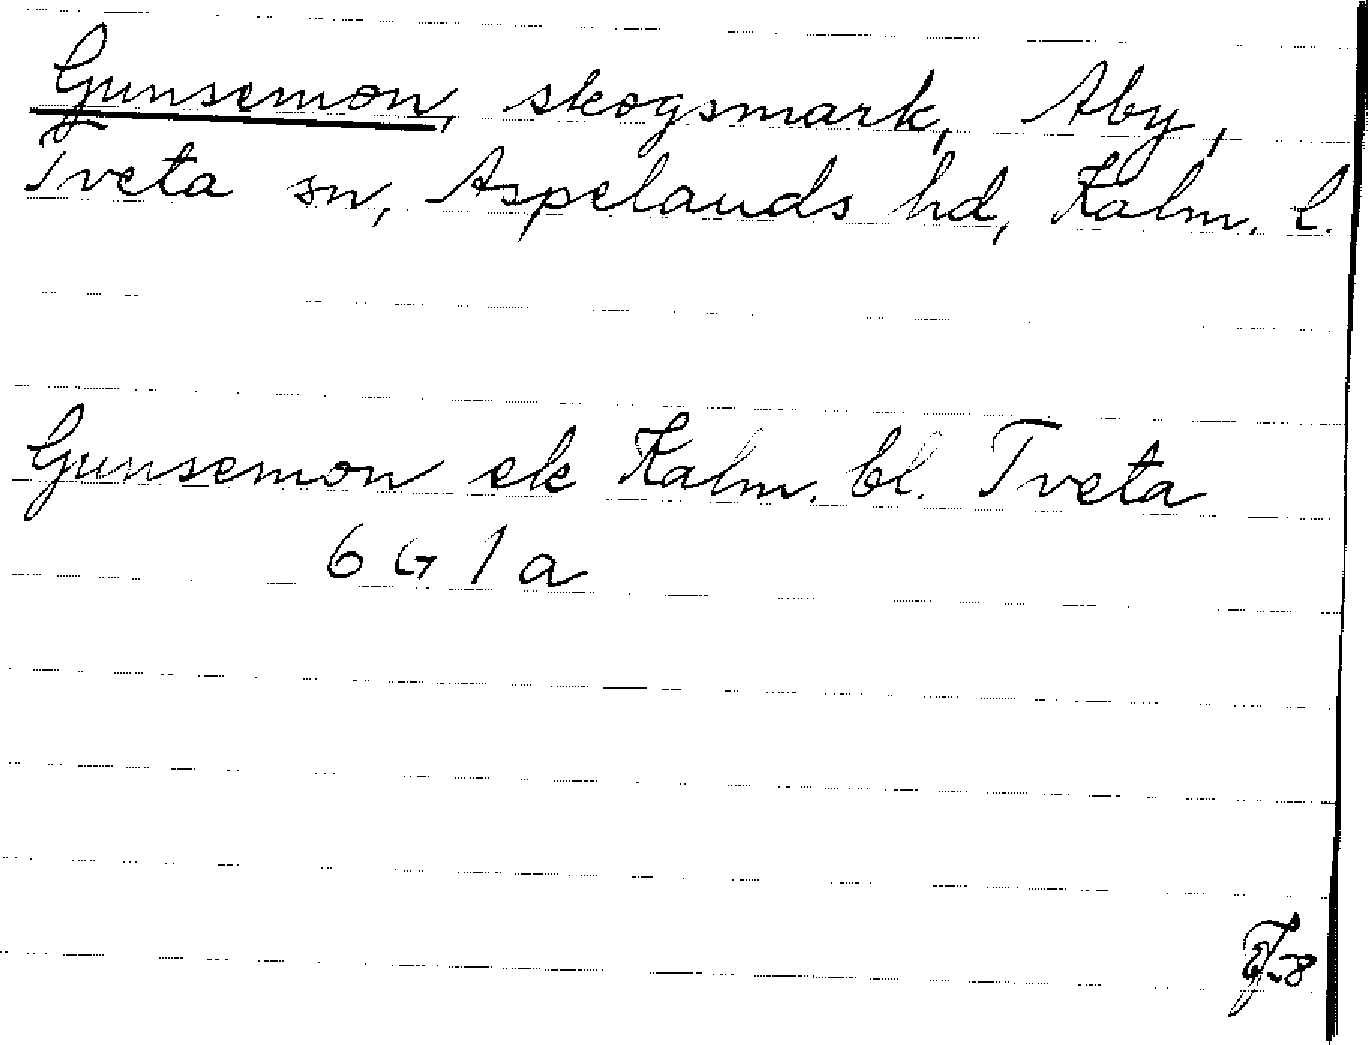 Gunsemon, skogsmark, Åby,
Tveta sn, Aspelands hd, Kalm. l.
Gunsemon ek Kalm. bl. Tveta
6 G 1 a